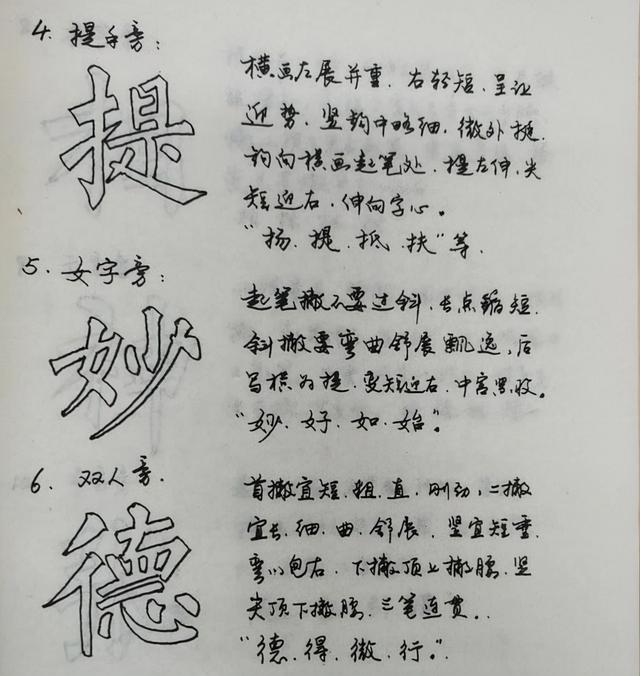 4. 提手旁：
提
横画左展并重，右轻短，呈让
迎势，竖钩中略细，微外挺，
钩向横画起笔处，提左伸，尖
短迎右，伸向字心。
“扬、提、抵、扶”等.
5. 女字旁：
妙
起笔撇不要过斜，长点缩短.
斜撇要弯曲舒展飘逸，后
写横为提，变短迎右，中宫紧收。
“妙、好、如、始”。
6. 双人旁.
德
首撇宜短、粗、直、刚劲，二撇
宜长、细、曲、舒展，竖宜短重
弯以包右，下撇顶上撇腰，竖
尖顶下撇腰，三笔连贯.
“德、得、微、行”.